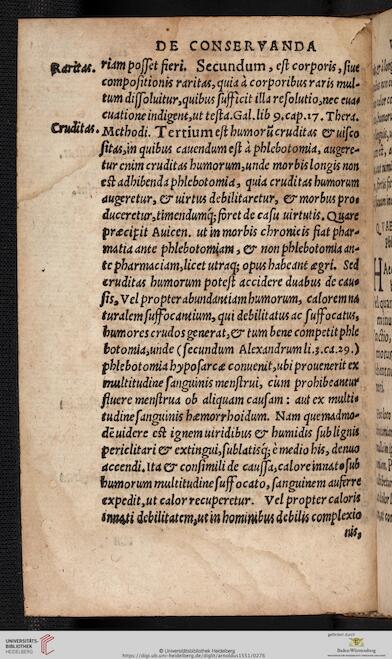 DE CONSERVANDA
Raritas. riam posset fieri. Secundum, est corporis, siue
compositionis raritas, quia à corporibus raris mul-
tum dissoluitur, quibus sufficit illa resolutio, nec eua-
cuatione indigent, ut testa. Gal. lib 9. cap. 17. Thera.
Cruditas. Methodi. Tertium est humorũ cruditas & uisco
sitas, in quibus cauendum est à phlebotomia, augere-
tur enim cruditas humorum, unde morbis longis non
est adhibenda phlebotomia, quia cruditas humorum
augeretur, & uirtus debilitaretur, & morbus pro-
duceretur, timendumq́; foret de casu uirtutis. Quare
præcipit Auicen. ut in morbis chronicis fiat phar-
matia ante phlebotomiam, & non phlebotomia an-
te pharmaciam, licet utraq; opus habeant ægri. Sed
cruditas humorum potest accidere duabus de cau-
sis. Vel propter abundantiam humorum, calorem na
turalem suffocantium, qui debilitatus ac suffocatus,
humores crudos generat, & tum bene competit phle
botomia, unde (secundum Alexandrum li. 3. ca. 29.)
phlebotomia hyposarcæ conuenit, ubi prouenerit ex
multitudine sanguinis menstrui, cùm prohibeantur
fluere menstrua ob aliquam causam: aut ex multi-
tudine sanguinis hæmorrhoidum. Nam quemadmo-
dũ uidere est ignem uiridibus & humidis sub lignis
periclitari & extingui, sublatisq́; è medio his, denuo
accendi. Ita & consimili de caussa, calore innato sub
humorum multitudine suffocato, sanguinem auferre
expedit, ut calor recuperetur. Vel propter caloris
innati debilitatem, ut in hominibus debilis complexio
nis,
UNIVERSITÄTS-
BIBLIOTHEK
HEIDELBERG
https://digi.ub.uni-heidelberg.de/diglit/arnoldus1551/0276
© Universitätsbibliothek Heidelberg
gefördert durch
Baden-Württemberg